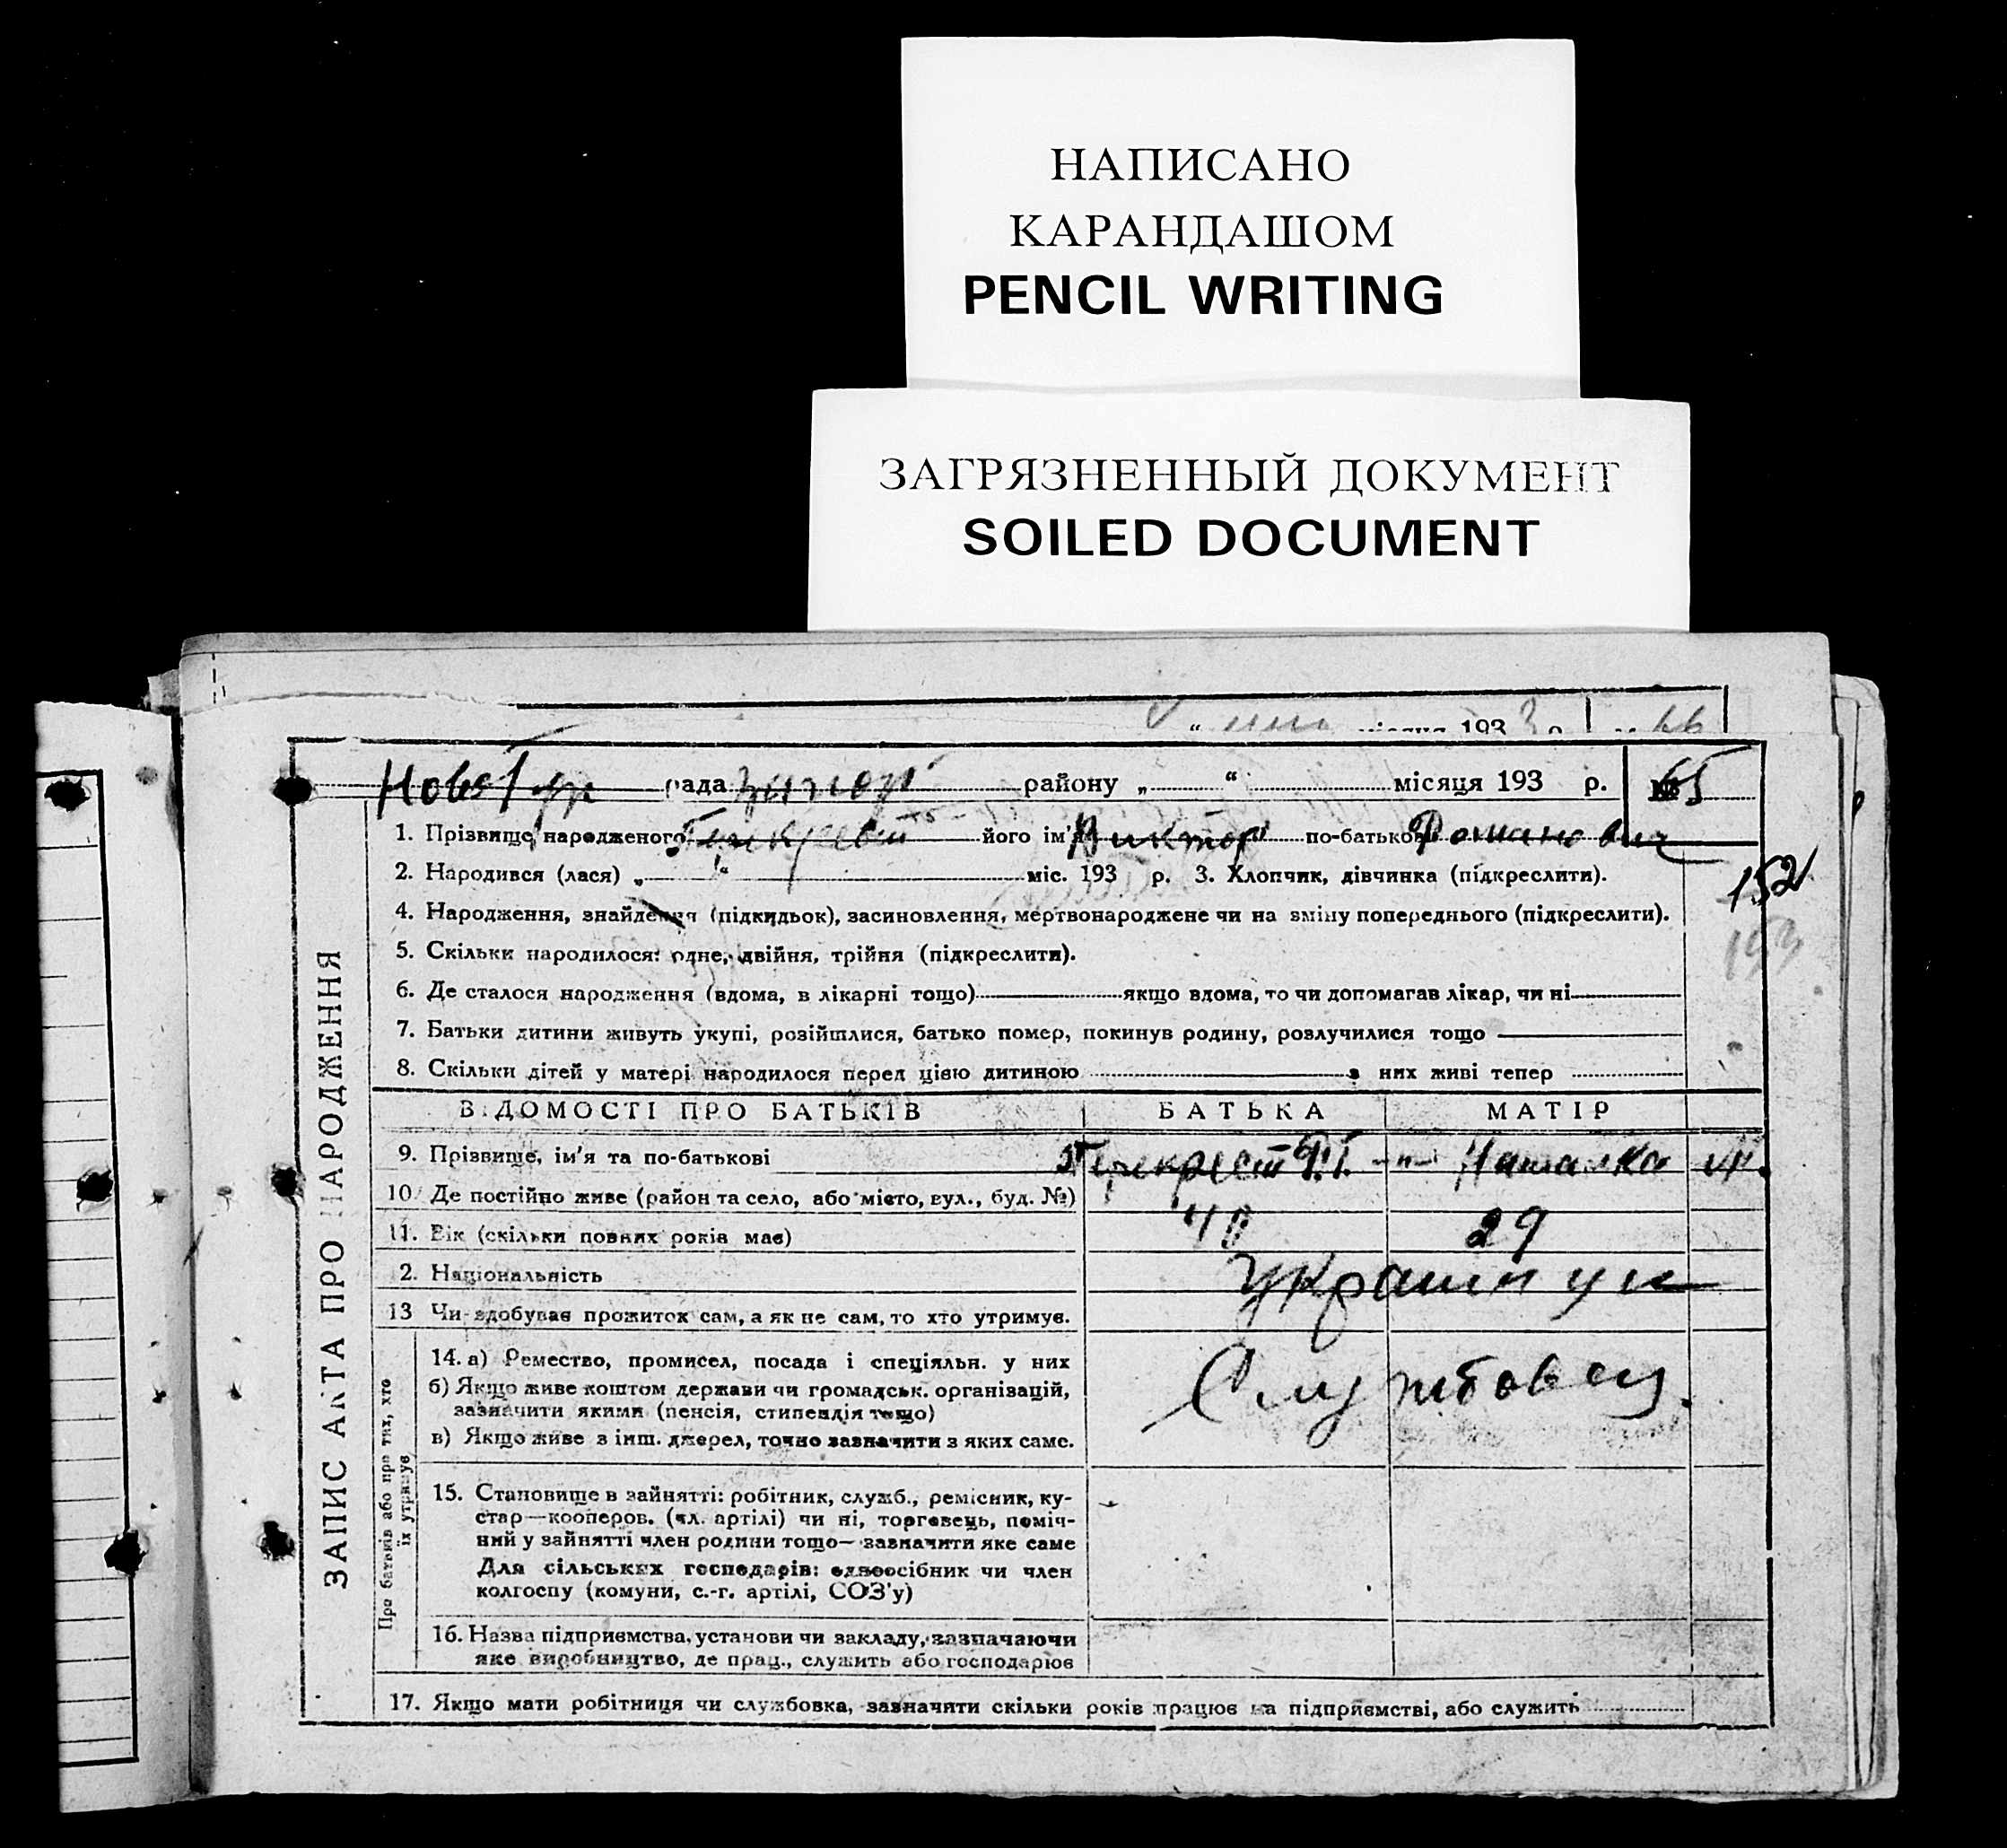 НАПИСАНО
КАРАНДАШОМ
PENCIL WRITING
ЗАГРЯЗНЕННЫЙ ДОКУМЕНТ
SOILED DOCUMENT
місяця 193 3 р. № 66
рада району „ “ місяця 193 р. № 65
1. Прізвище народженого Перехрест його ім'я Виктор по-батькові Романович
2. Народився (лася) „ “ міс. 193 р. 3. Хлопчик, дівчинка (підкреслити).
152
4. Народження, знайдення (підкидьок), засиновлення, мертвонароджене чи на зміну попереднього (підкреслити).
153
5. Скільки народилося: одне, двійня, трійня (підкреслити).
6. Де сталося народження (вдома, в лікарні тощо) якщо вдома, то чи допомагав лікар, чи ні
7. Батьки дитини живуть укупі, розійшлися, батько помер, покинув родину, розлучилися тощо
8. Скільки дітей у матері народилося перед цією дитиною з них живі тепер
ЗАПИС АКТА ПРО НАРОДЖЕННЯ
ВІДОМОСТІ ПРО БАТЬКІВ БАТЬКА МАТІР
9. Прізвище, ім'я та по-батькові Перехрест Р.Г. -"- Наталка
10. Де постійно живе (район та село, або місто, вул., буд. №)
11. Вік (скільки повних років має) 40 29
2. Національність Украинци
13 Чи здобуває прожиток сам, а як не сам, то хто утримує.
Про батьків або про тих, хто їх утримує
14. а) Ремество, промисел, посада і спеціяльн. у них Службовец.
б) Якщо живе коштом держави чи громадськ. організацій,
зазначити якими (пенсія, стипендія тощо)
в) Якщо живе з інш. джерел, точно зазначити з яких саме.
15. Становище в зайнятті: робітник, служб., ремісник, ку-
стар—кооперов. (чл. артілі) чи ні, торговець, поміч-
ний у зайнятті член родини тощо—зазначити яке саме
Для сільських господарів: одноосібник чи член
колгоспу (комуни, с.-г. артілі, СОЗ'у)
16. Назва підприємства, установи чи закладу, зазначаючи
яке виробництво, де прац., служить або господарює
17. Якщо мати робітниця чи службовка, зазначити скільки років працює на підприємстві, або служить